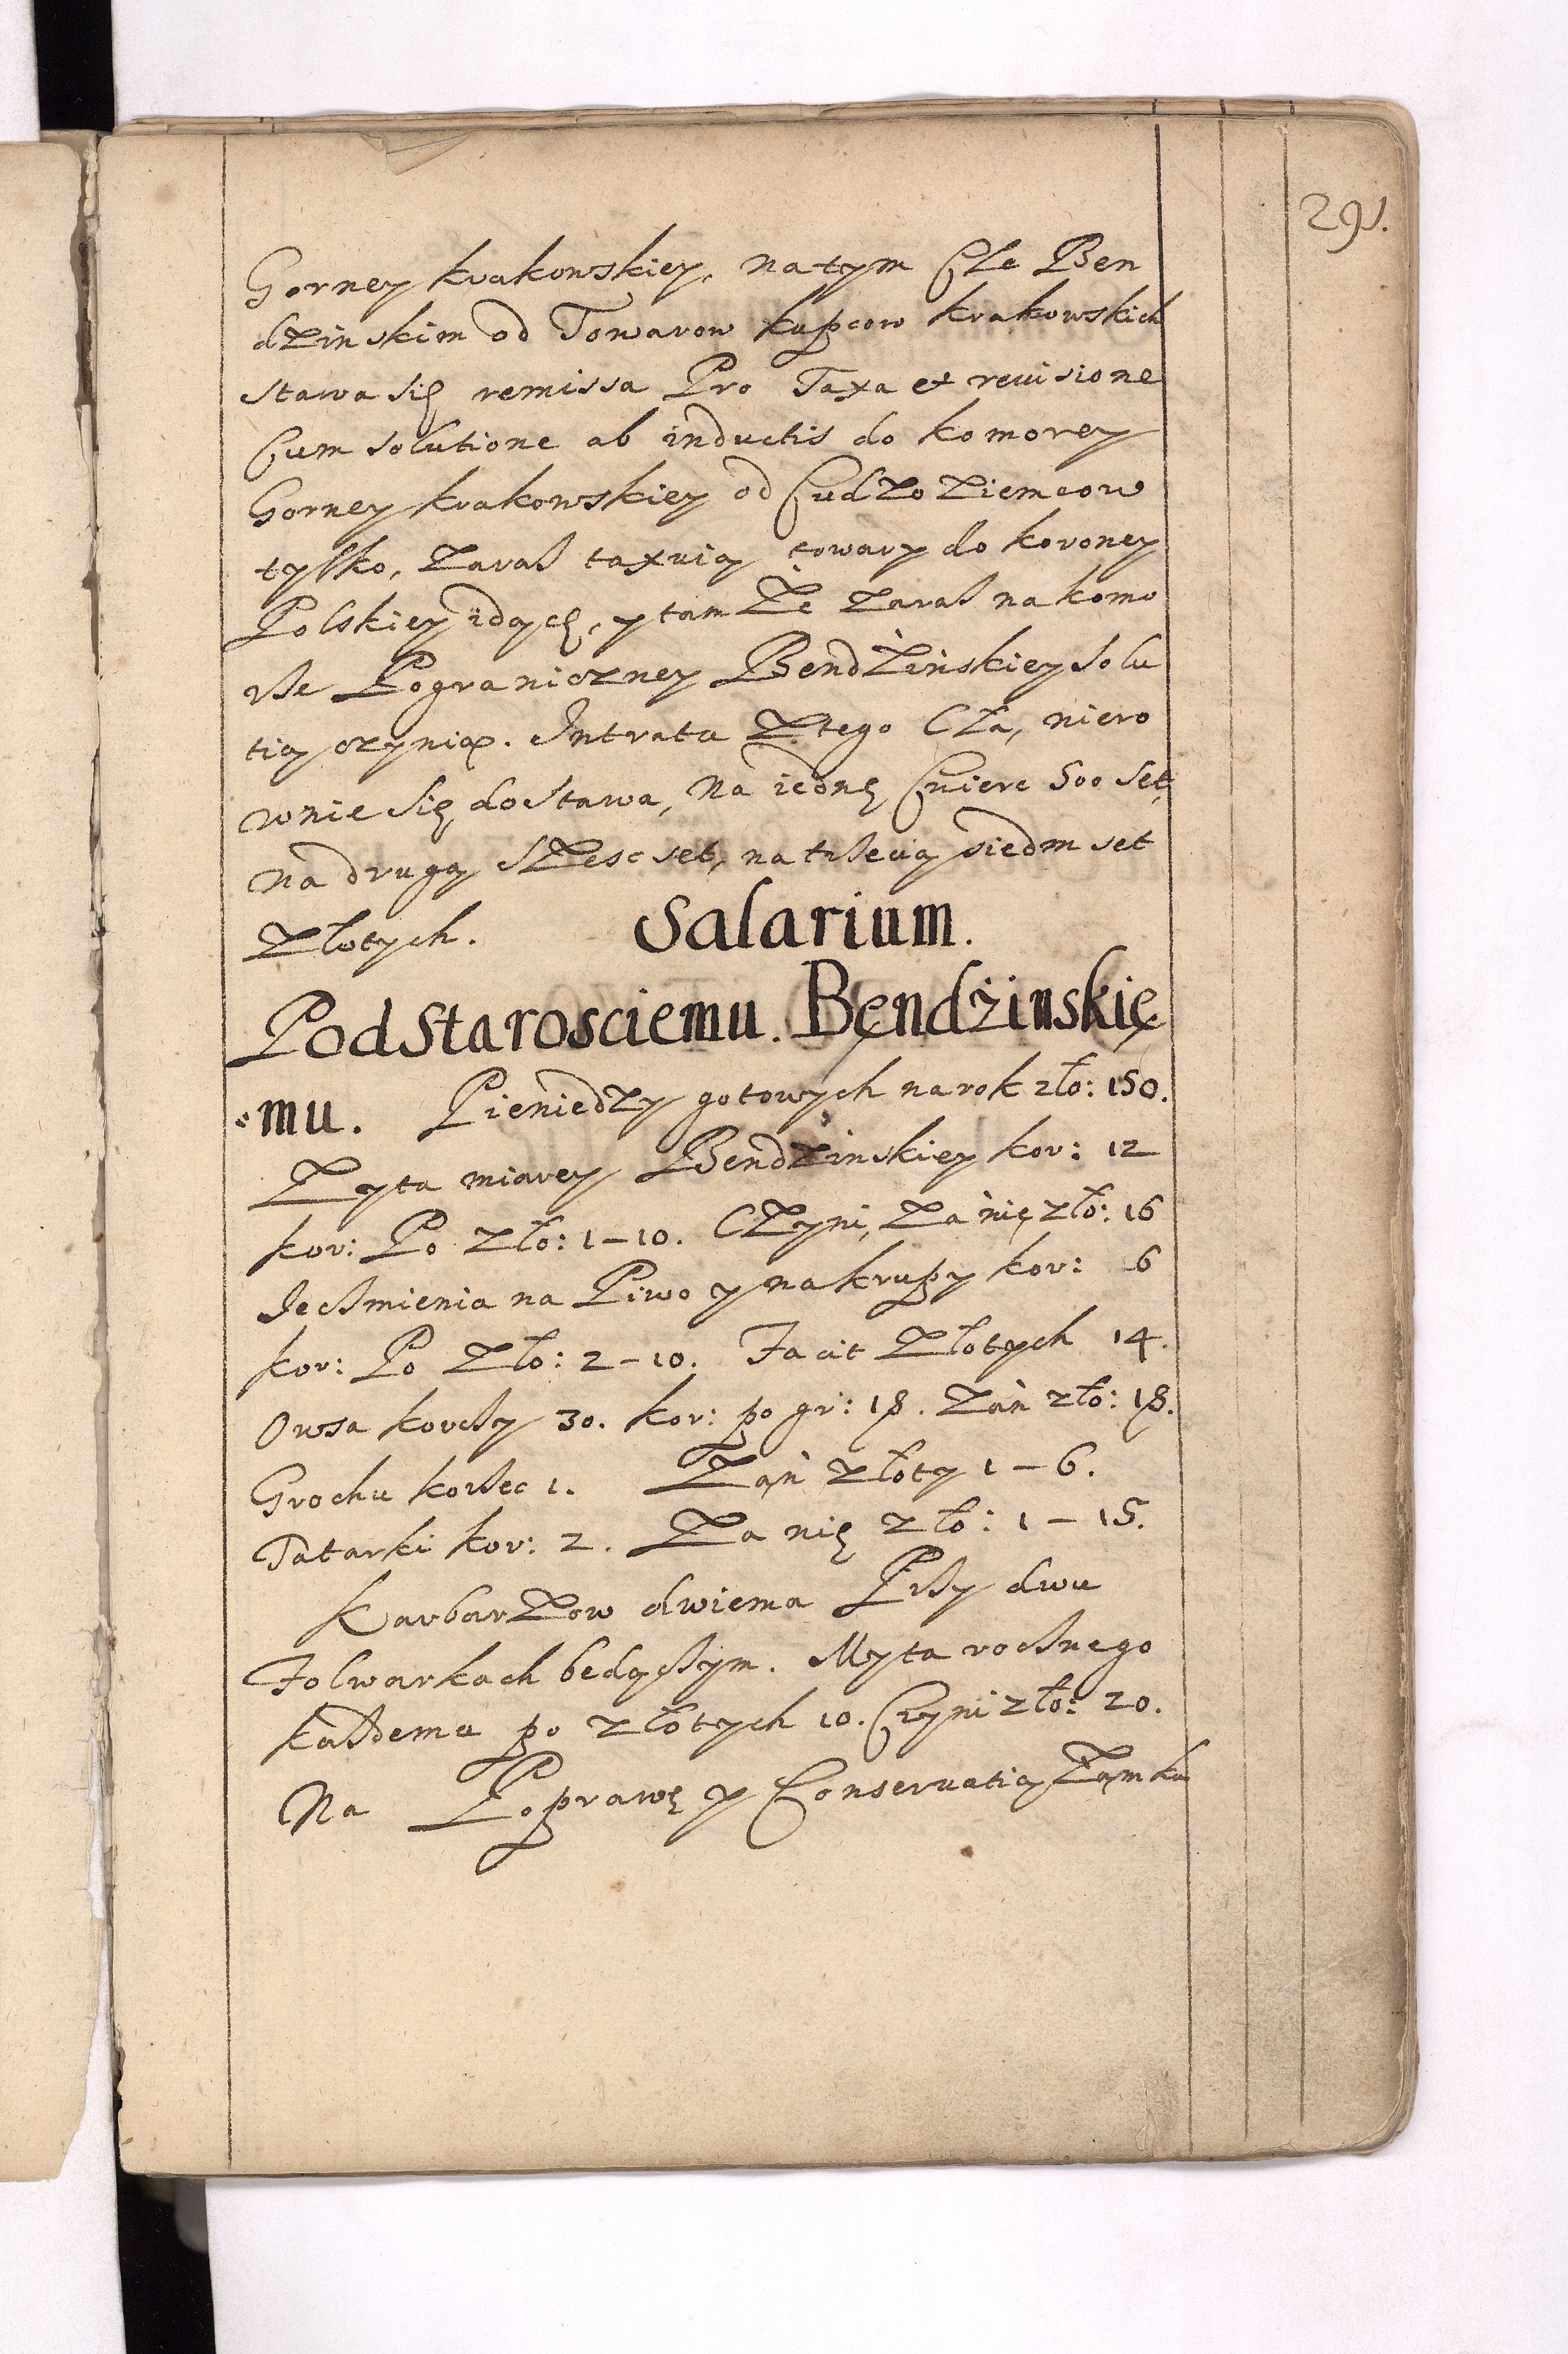 291.
Gorney krakowskiey, na tym Cle Ben
dzinskim od Towarow kupcow krakowskich
stawa się remissa Pro Taxa et reuisione
Cum solutione ab inductis do komorey
Gorney krakowskiey od Cudzo Ziemcow
tylko, Zaraß taxuią towary do koroney
Polskiey idącę, y tam Że Zaraß na komo
rße Pograniczney Bendżinskiey solu
tią czynią. Intrata Z tego Cła, niero
wnie się dostawa, na iednę Cwierc 500 set,
na drugą Szesc set, na trßecią siedm set
Złotych. Salarium.
PodStarosciemu. Bęndżinskię
:mu. Pieniedzy gotowych na rok zło: 150.
Zyta miarey Bendzinskiey kor: 12
kor: Po zło: 1–10. Czyni, Za nię zło: 16
Jećßmienia na Piwo y na krupy kor: 6
kor: Po Zło: 2–10. Facit Złotych 14.
Owsa korcßy 30. kor: po gr: 18. Zań zło: 18.
Grochu korßec 1. Zań Złoty 1–6.
Tatarki kor: 2. Za nię zło: 1–15.
karbarzow dwiema Prßy dwu
Folwarkach bedącßym. Myta rocßnego
każdemu po złotych 10. Czyni zło: 20.
Na Poprawę y Conseruatią Zamku